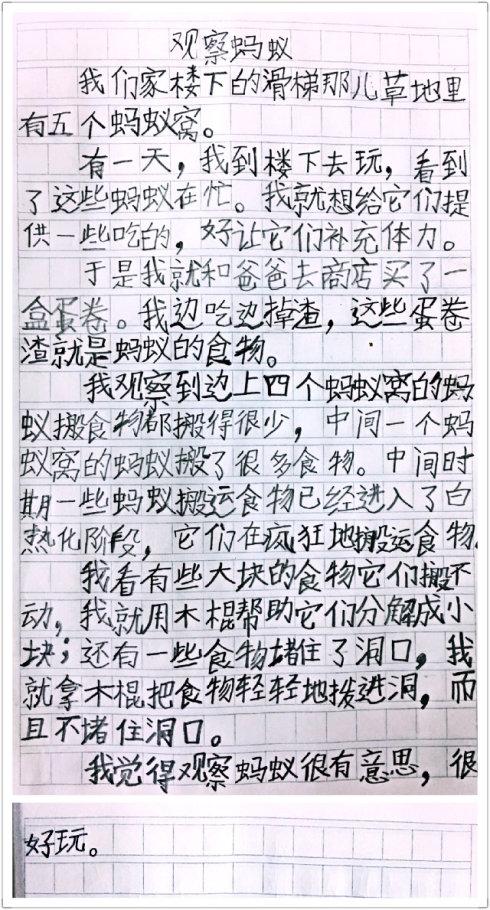 观察蚂蚁
我们家楼下的滑梯那儿草地里
有五个蚂蚁窝。
有一天，我到楼下去玩，看到
了这些蚂蚁在忙。我就想给它们提
供一些吃的，好让它们补充体力。
于是我就和爸爸去商店买了一
盒蛋卷。我边吃边掉渣，这些蛋卷
渣就是蚂蚁的食物。
我观察到边上四个蚂蚁窝的蚂
蚁搬食物都搬得很少，中间一个蚂
蚁窝的蚂蚁搬了很多食物。中间时
期一些蚂蚁搬运食物已经进入了白
热化阶段，它们在疯狂地搬运食物.
我看有些大块的食物它们搬不
动，我就用木棍帮助它们分解成小
块；还有一些食物堵住了洞口，我
就拿木棍把食物轻轻地拨进洞，而
且不堵住洞口。
我觉得观察蚂蚁很有意思，很
好玩。